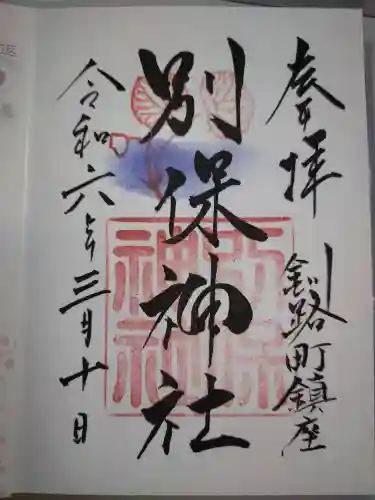 奉拝
釧路町鎮座
別保神社
別保神社
令和六年三月十日